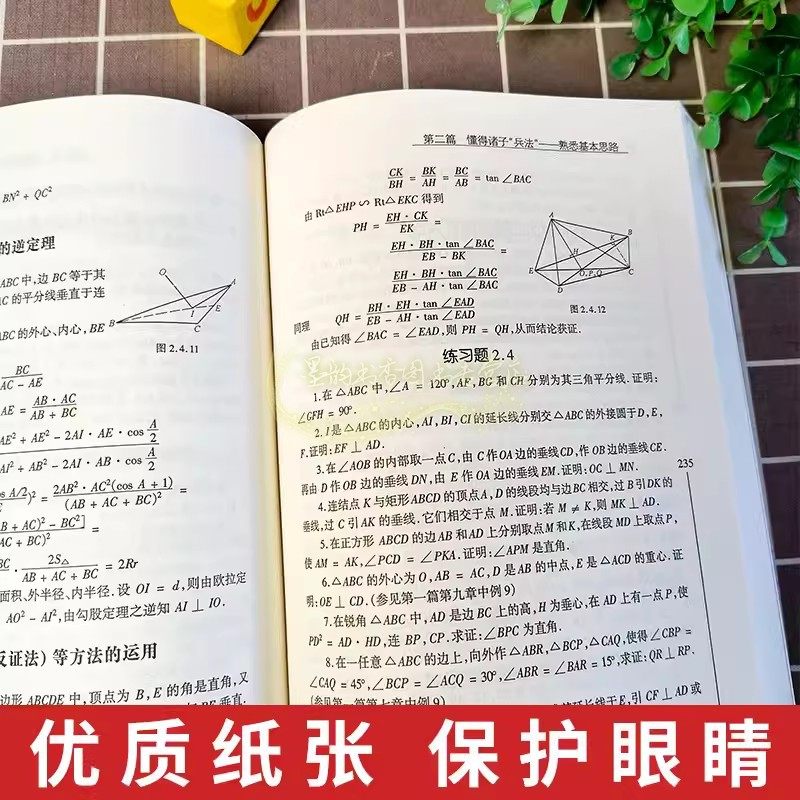 BN² + QC²
的逆定理
ABC 中,边 BC 等于其
AC 的平分线垂直于连
ABC 的外心、内心, BE
O
A
I
E
B
C
图 2.4.11
BC
AC - AE
AE = AB · AC / AB + BC
AE² + AE² - 2AI · AE · cos A/2
AI² + AB² - 2AI · AB · cos A/2
cos A/2)² = 2AB² · AC²(cos A + 1) / (AB + AC + BC)² =
B + AC)² - BC²] / AC + BC)² =
BC · 2S△ / AB + AC + BC = 2Rr
面积、外半径、内半径. 设 OI = d,则由欧拉定
AO² - AI²,由勾股定理之逆知 AI ⊥ IO.
反证法) 等方法的运用
边形 ABCDE 中,顶点为 B, E 的角是直角,又
第二篇 懂得诸子“兵法”——熟悉基本思路
CK/BH = BK/AH = BC/AB = tan ∠BAC
由 Rt△EHP ∽ Rt△EKC 得到
PH = EH · CK / EK =
EH · BH · tan ∠BAC / EB - BK =
EH · BH · tan ∠BAC / EB - AH · tan ∠BAC
A
B
K
H
E
O,P,Q
C
D
图 2.4.12
同理 QH = BH · EH · tan ∠EAD / EB - AH · tan ∠EAD
由已知得 ∠BAC = ∠EAD,则 PH = QH,从而结论获证.
练习题 2.4
1. 在 △ABC 中,∠A = 120°, AF, BG 和 CH 分别为其三角平分线. 证明:
∠GFH = 90°.
2. I 是 △ABC 的内心, AI, BI, CI 的延长线分别交 △ABC 的外接圆于 D, E,
F. 证明: EF ⊥ AD.
3. 在 ∠AOB 的内部取一点 C,由 C 作 OA 边的垂线 CD,作 OB 边的垂线 CE.
再由 D 作 OB 边的垂线 DN,由 E 作 OA 边的垂线 EM. 证明: OC ⊥ MN.
235
4. 连结点 K 与矩形 ABCD 的顶点 A, D 的线段均与边 BC 相交,过 B 引 DK 的
垂线,过 C 引 AK 的垂线. 它们相交于点 M. 证明:若 M ≠ K,则 MK ⊥ AD.
5. 在正方形 ABCD 的边 AB 和 AD 上分别取点 M 和 K,在线段 MD 上取点 P,
使 AM = AK,∠PCD = ∠PKA. 证明: ∠APM 是直角.
6. △ABC 的外心为 O, AB = AC, D 是 AB 的中点, E 是 △ACD 的重心. 证
明: OE ⊥ CD. (参见第一篇第九章中例 9)
7. 在锐角 △ABC 中, AD 是边 BC 上的高, H 为垂心,在 AD 上有一点 P,使
PD² = AD · HD,连 BP, CP. 求证: ∠BPC 为直角.
8. 在一任意 △ABC 的边上,向外作 △ABR, △BCP, △CAQ,使得 ∠CBP =
∠CAQ = 45°, ∠BCP = ∠ACQ = 30°, ∠ABR = ∠BAR = 15°,求证: QR ⊥ RP.
(参见第一篇第七章中例 9)
延长线于 E,引 CF ⊥ AD 或
优质纸张 保护眼睛